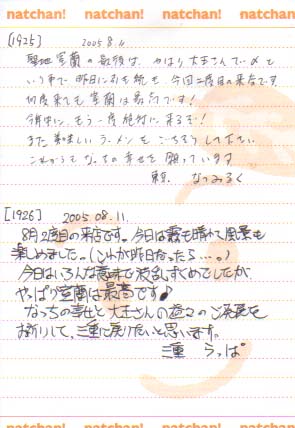 natchan! natchan! natchan! natchan!
[1925] 2005 8.11
聖地室蘭の最後は、やはり大王さんで〆と
いう事で昨日に引き続き、今回二度目の来店です。
何度来ても室蘭は最高です!
今年中に、もう一度絶対に来るぞ!
また美味しいラーメンをごちそうして下さい。
これからもなっちの幸せを願っています
東京 なつみるく
[1926] 2005.08.11.
8月2度目の来店です。今日は霧も晴れて風景も
楽しめました。(これが昨日だったら…。)
今日はいろんな意味で波乱ずくめでしたが、
やっぱり室蘭は最高です♪
なっちの幸せと大王さんの益々のご発展を
お祈りして、三重に戻りたいと思います。
三重 らっぱ
natchan! natchan! natchan! natchan!